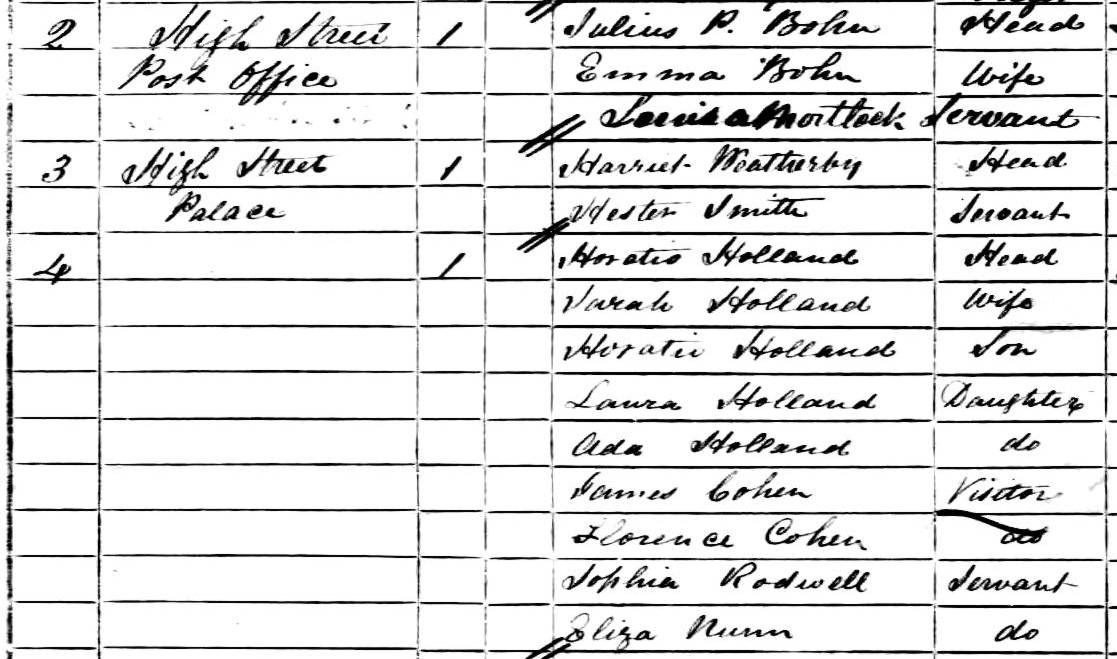 2 High Street 1 Julius P. Bohn Head
Post Office Emma Bohn Wife
Louisa Mortlock Servant
3 High Street 1 Harriet Weatherby Head
Palace Hester Smith Servant
4 1 Horatio Holland Head
Sarah Holland Wife
Horatio Holland Son
Laura Holland Daughter
Ada Holland do
James Cohen Visitor
Florence Cohen do
Sophia Rodwell Servant
Eliza Nunn do